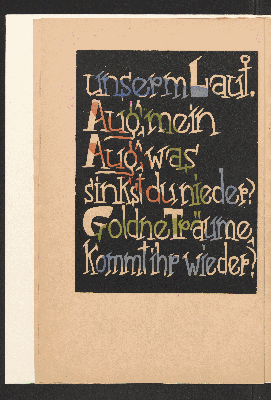 unserm Lauf.
Aug', mein
Aug', was
sinkst du nieder?
Goldne Träume,
Kommt ihr wieder?